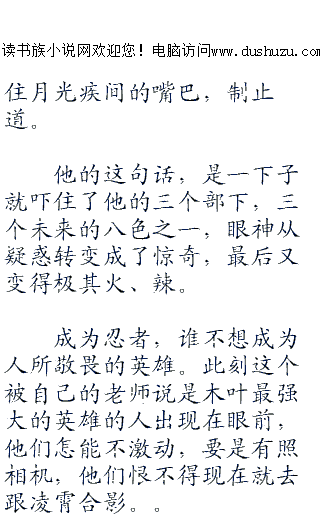 读书族小说网欢迎您！电脑访问www.dushuzu.com
住月光疾间的嘴巴，制止
道。
他的这句话，是一下子
就吓住了他的三个部下，三
个未来的八色之一，眼神从
疑惑转变成了惊奇，最后又
变得极其火、辣。
成为忍者，谁不想成为
人所敬畏的英雄。此刻这个
被自己的老师说是木叶最强
大的英雄的人出现在眼前，
他们怎能不激动，要是有照
相机，他们恨不得现在就去
跟凌霄合影。。